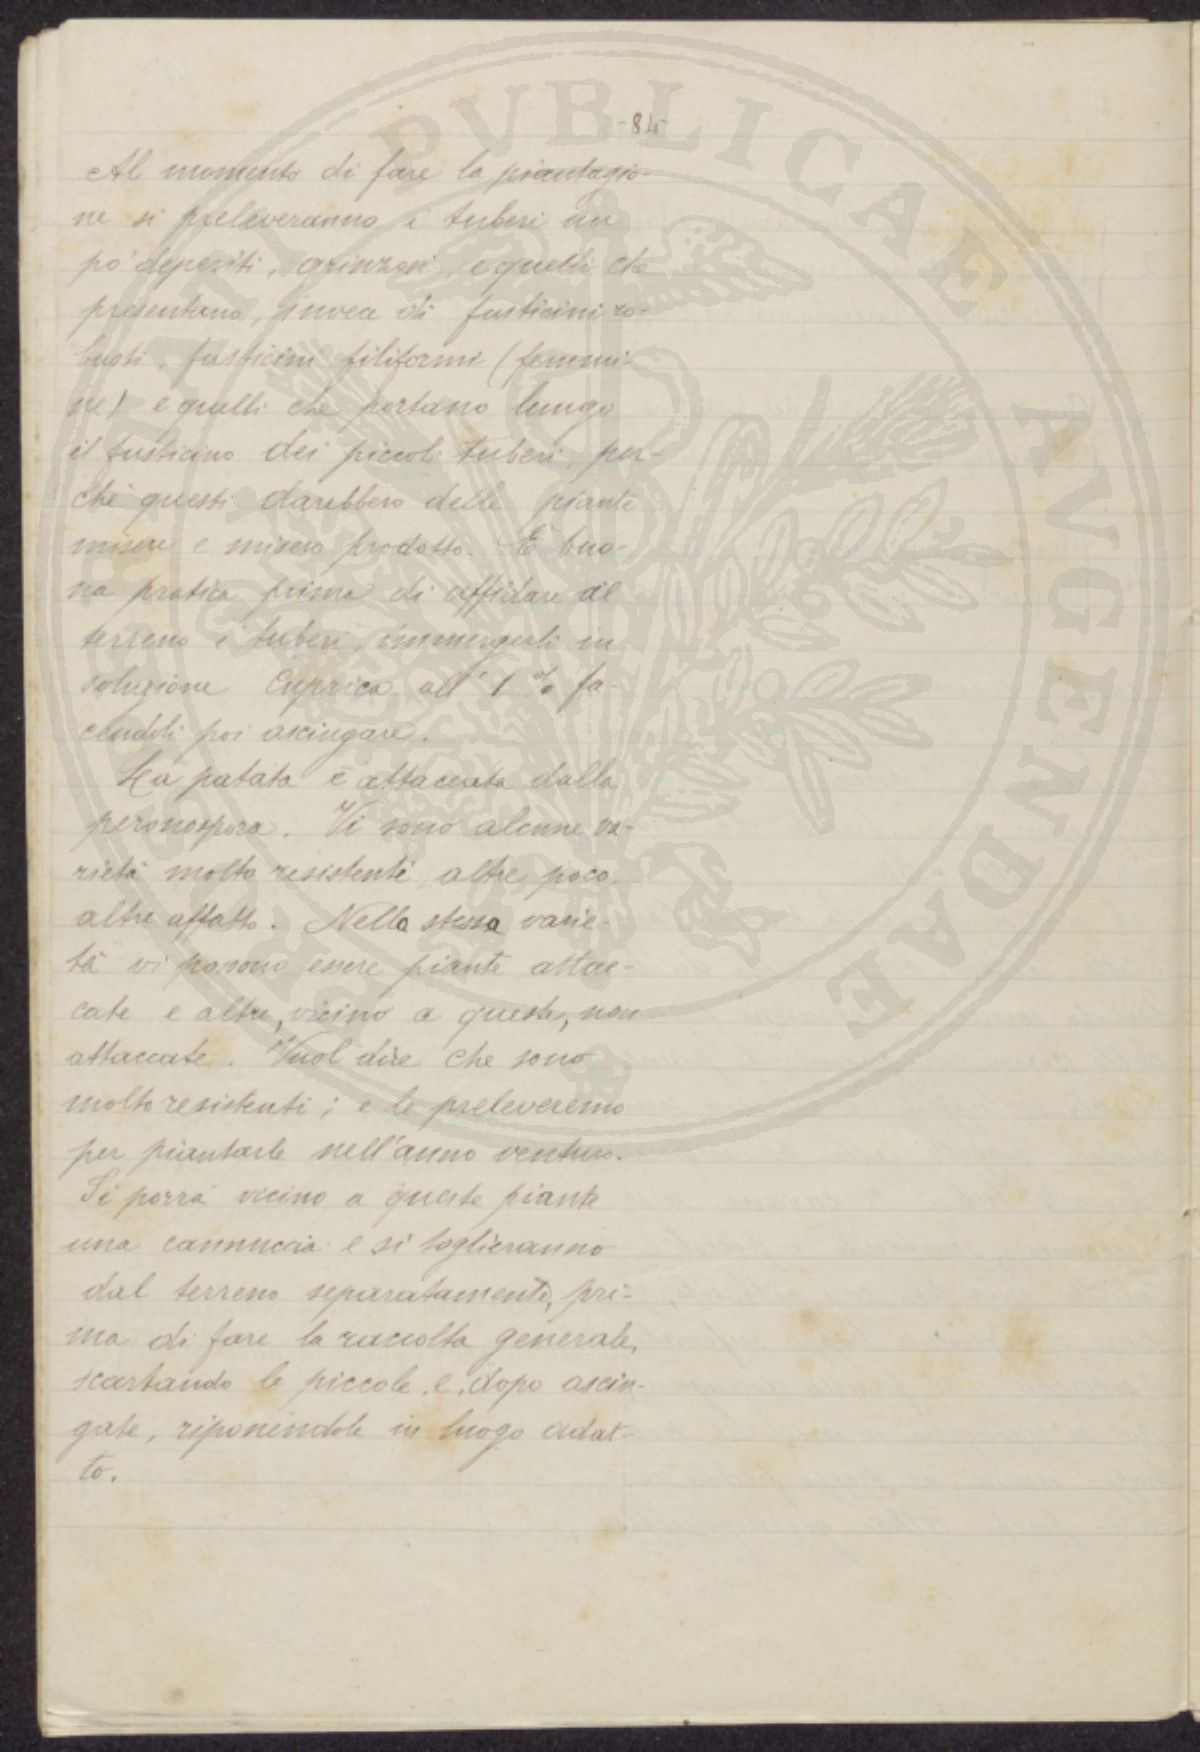 -84-
Al momento di fare la piantagio-
ne si preleveranno i tuberi un
po' deperiti, grinzosi, e quelli che
presentano, invece di fusticini ro-
busti, fusticini filiformi (femmi-
ne) e quelli che portano lungo
il fusticino dei piccoli tuberi, per-
chè questi darebbero delle piante
misere e misero prodotto. È buo-
na pratica prima di affidare al
terreno i tuberi, immergerli in
soluzione Cuprica all'1% fa-
cendoli poi asciugare.
La patata è attaccata dalla
peronospora. Vi sono alcune va-
rietà molto resistenti, altre poco
altre affatto. Nella stessa varie-
tà vi possono essere piante attac-
cate e altre, vicino a queste, non
attaccate. Vuol dire che sono
molto resistenti; e le preleveremo
per piantarle nell'anno venturo.
Si porrà vicino a queste piante
una cannuccia e si toglieranno
dal terreno separatamente, pri-
ma di fare la raccolta generale,
scartando le piccole, e, dopo asciu-
gate, riponendole in luogo adat-
to.
PVBLICAE AVGENDAE